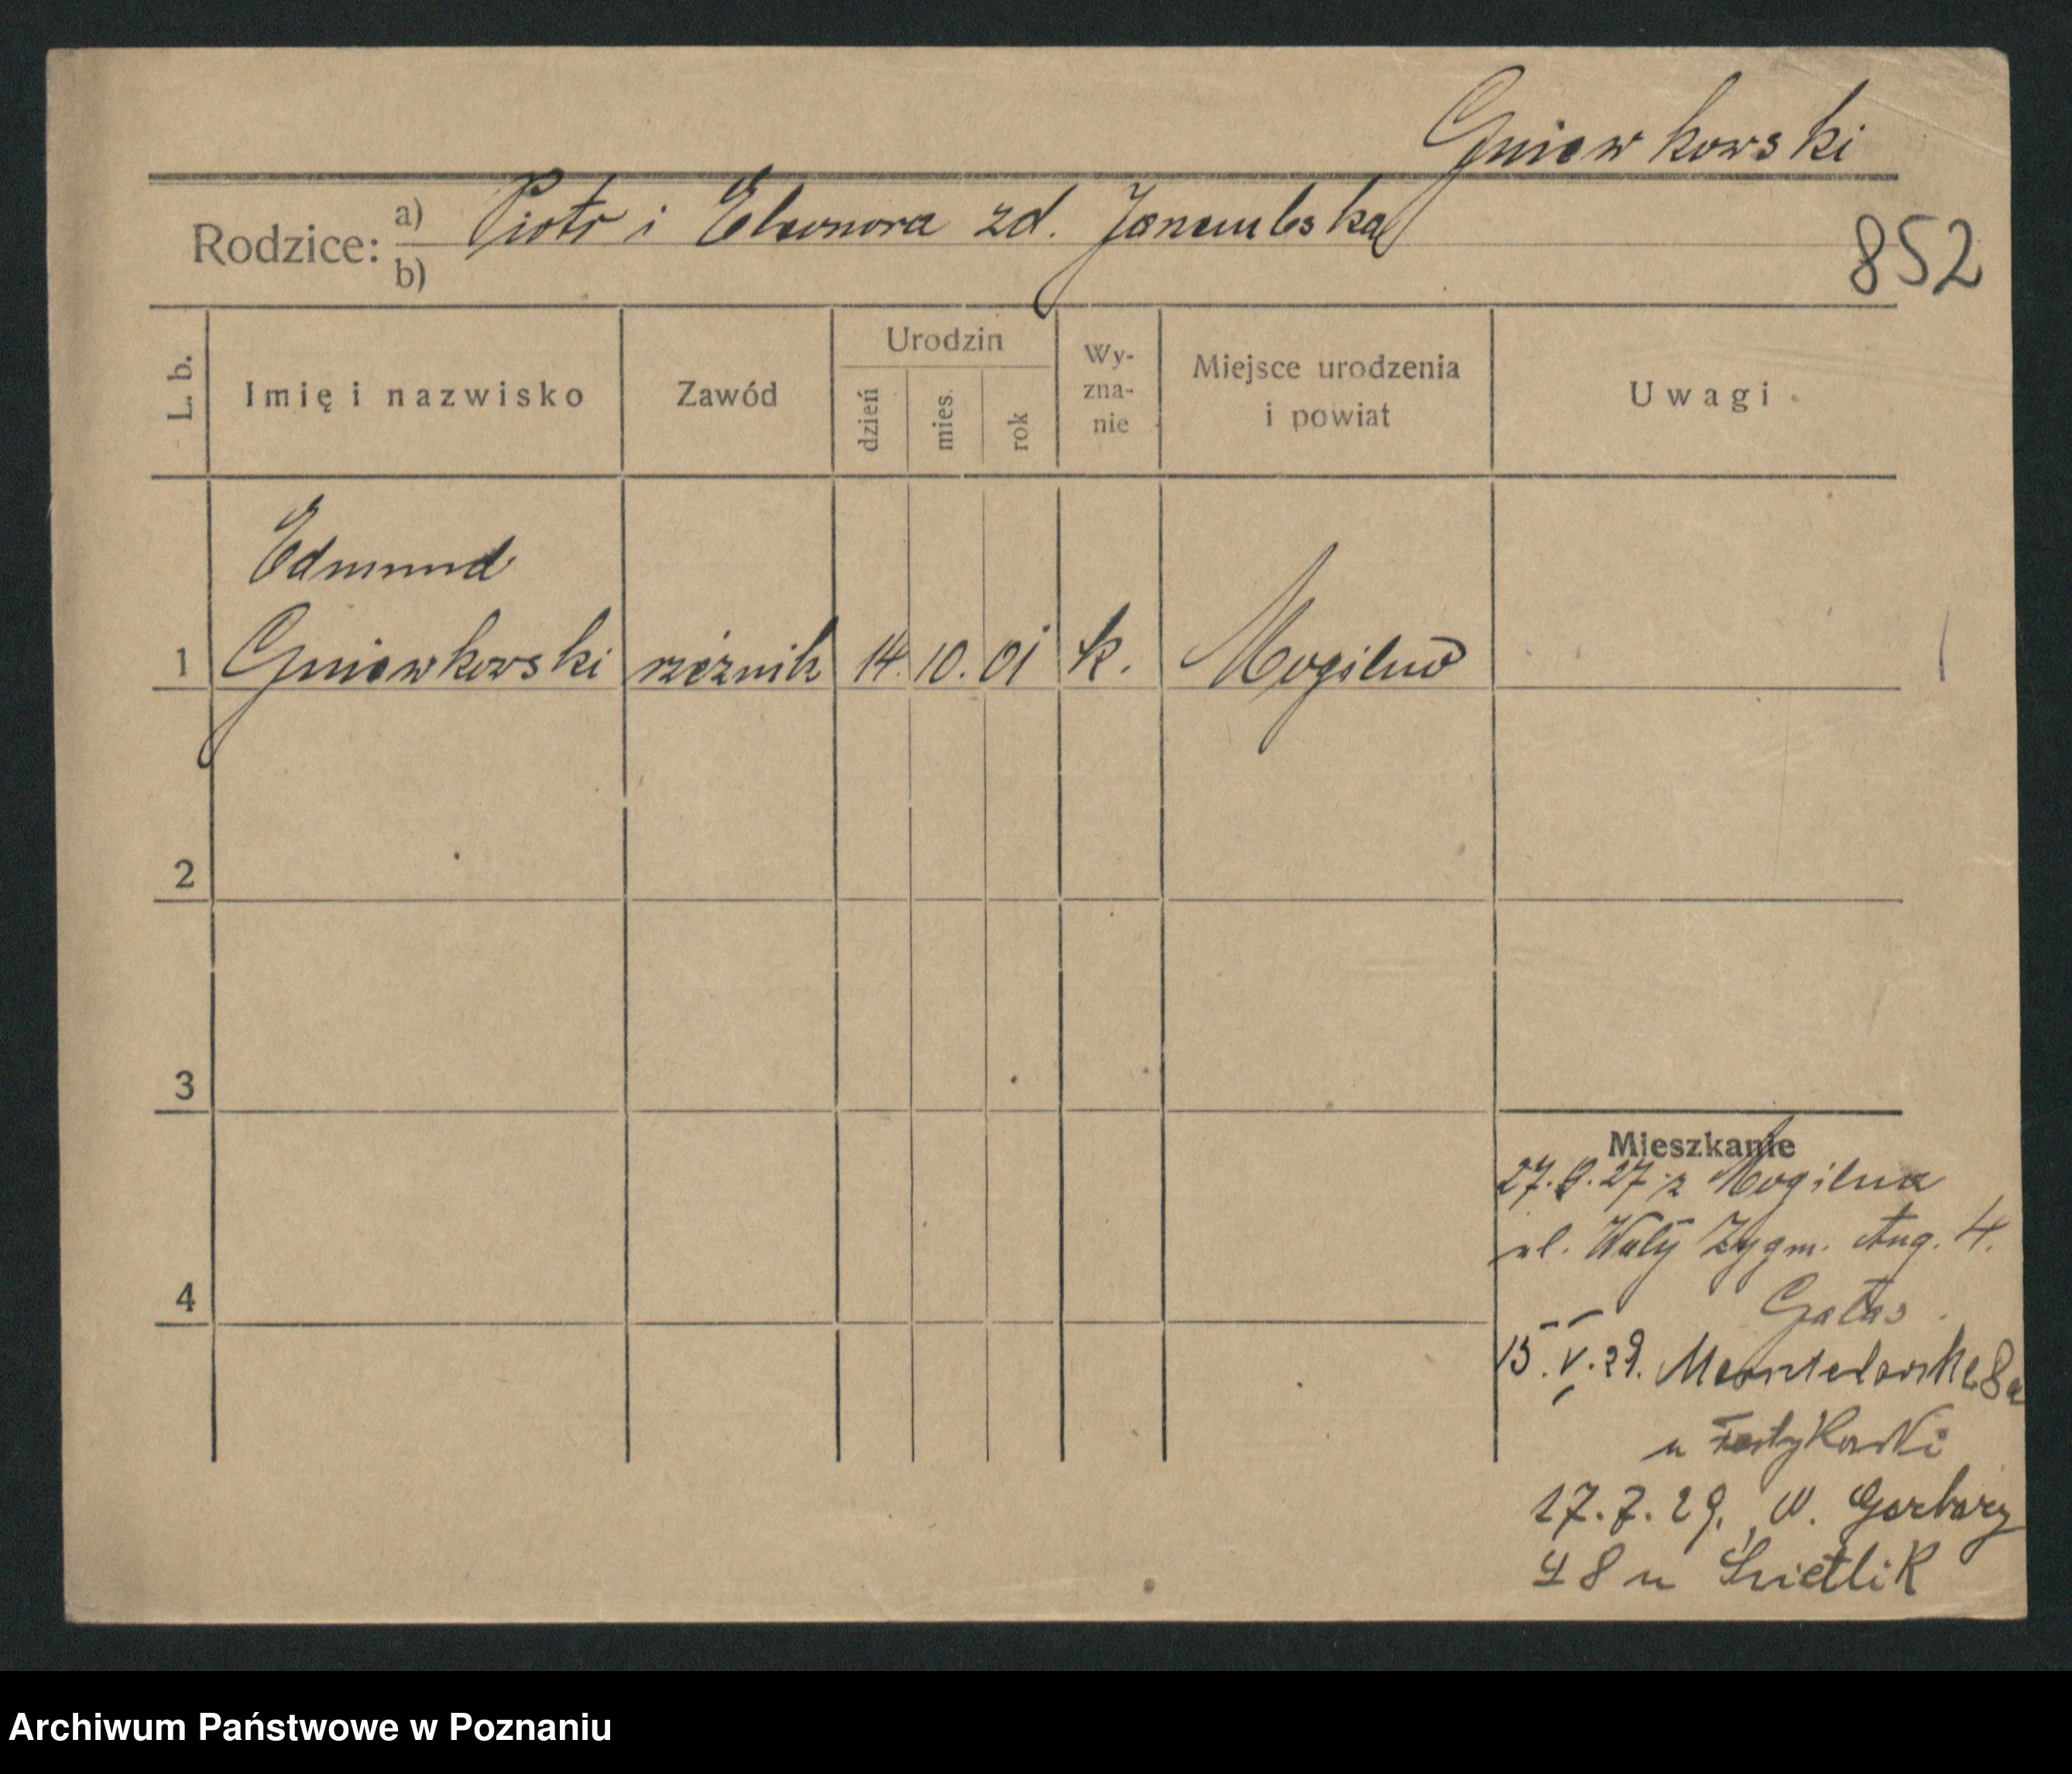 Gniewkowski
Rodzice: a) Piotr i Eleonora zd.
b)
852
L. b.
Imię i nazwisko
Zawód
Urodzin
dzień
mies.
rok
Wy-
zna-
nie
Miejsce urodzenia
i powiat
Uwagi
Edmund
1 Gniewkowski rzeźnik 14. 10. 01 k. Mogilno
2
3
4
Mieszkanie
27.9.27 z Mogilna
ul. Wały Zygm. Aug. 4.
Gałas
15.V.29. 8a
u
17.7.29. W. Garbary
48 u Świetlik
Archiwum Państwowe w Poznaniu